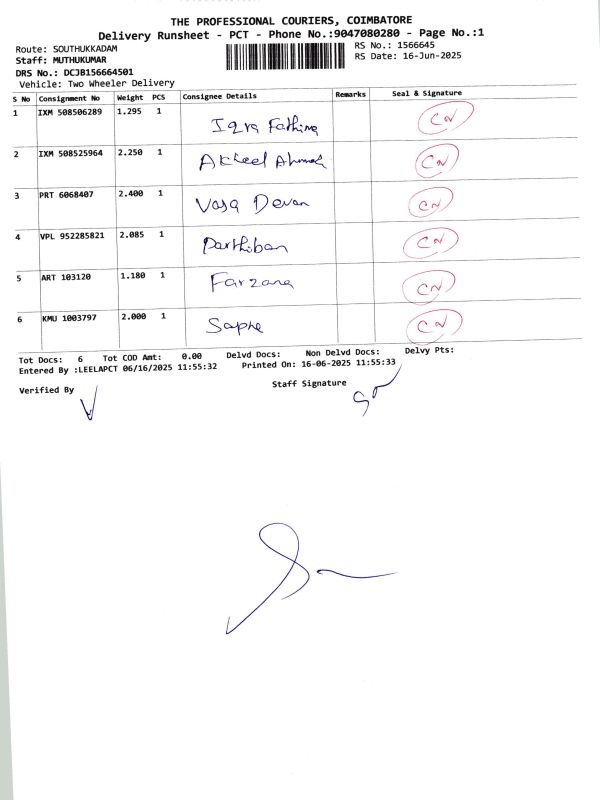 THE PROFESSIONAL COURIERS, COIMBATORE
Delivery Runsheet - PCT - Phone No.:9047080280 - Page No.:1
Route: SOUTHUKKADAM RS No.: 1566645
Staff: MUTHUKUMAR RS Date: 16-Jun-2025
DRS No.: DCJB156664501
Vehicle: Two Wheeler Delivery
S No Consignment No Weight PCS Consignee Details Remarks Seal & Signature
1 IXM 508506289 1.295 1 Iqra Fathima CN
2 IXM 508525964 2.250 1 Akheel Ahmed CN
3 PRT 6068407 2.400 1 Vasa Devan CN
4 VPL 952285821 2.085 1 Parthiban CN
5 ART 103120 1.180 1 Farzana CN
6 KMU 1003797 2.000 1 CN
Tot Docs: 6 Tot COD Amt: 0.00 Delvd Docs: Non Delvd Docs: Delvy Pts:
Entered By :LEELAPCT 06/16/2025 11:55:32 Printed On: 16-06-2025 11:55:33
Verified By Staff Signature